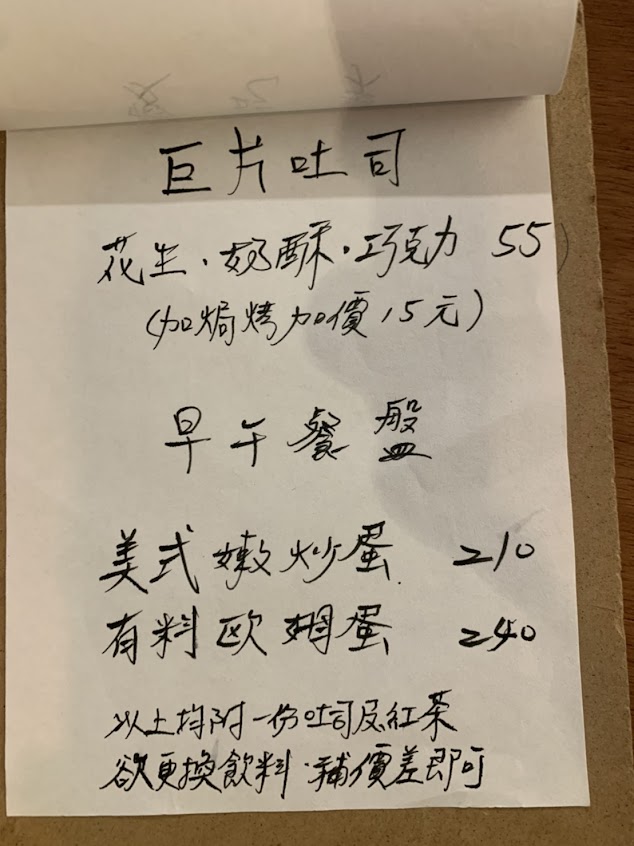 巨片吐司
花生．奶酥．巧克力 55
(加焗烤加價15元)
早午餐盤
美式嫩炒蛋 210
有料歐姆蛋 240
以上均附一份吐司及紅茶
欲更換飲料．補價差即可